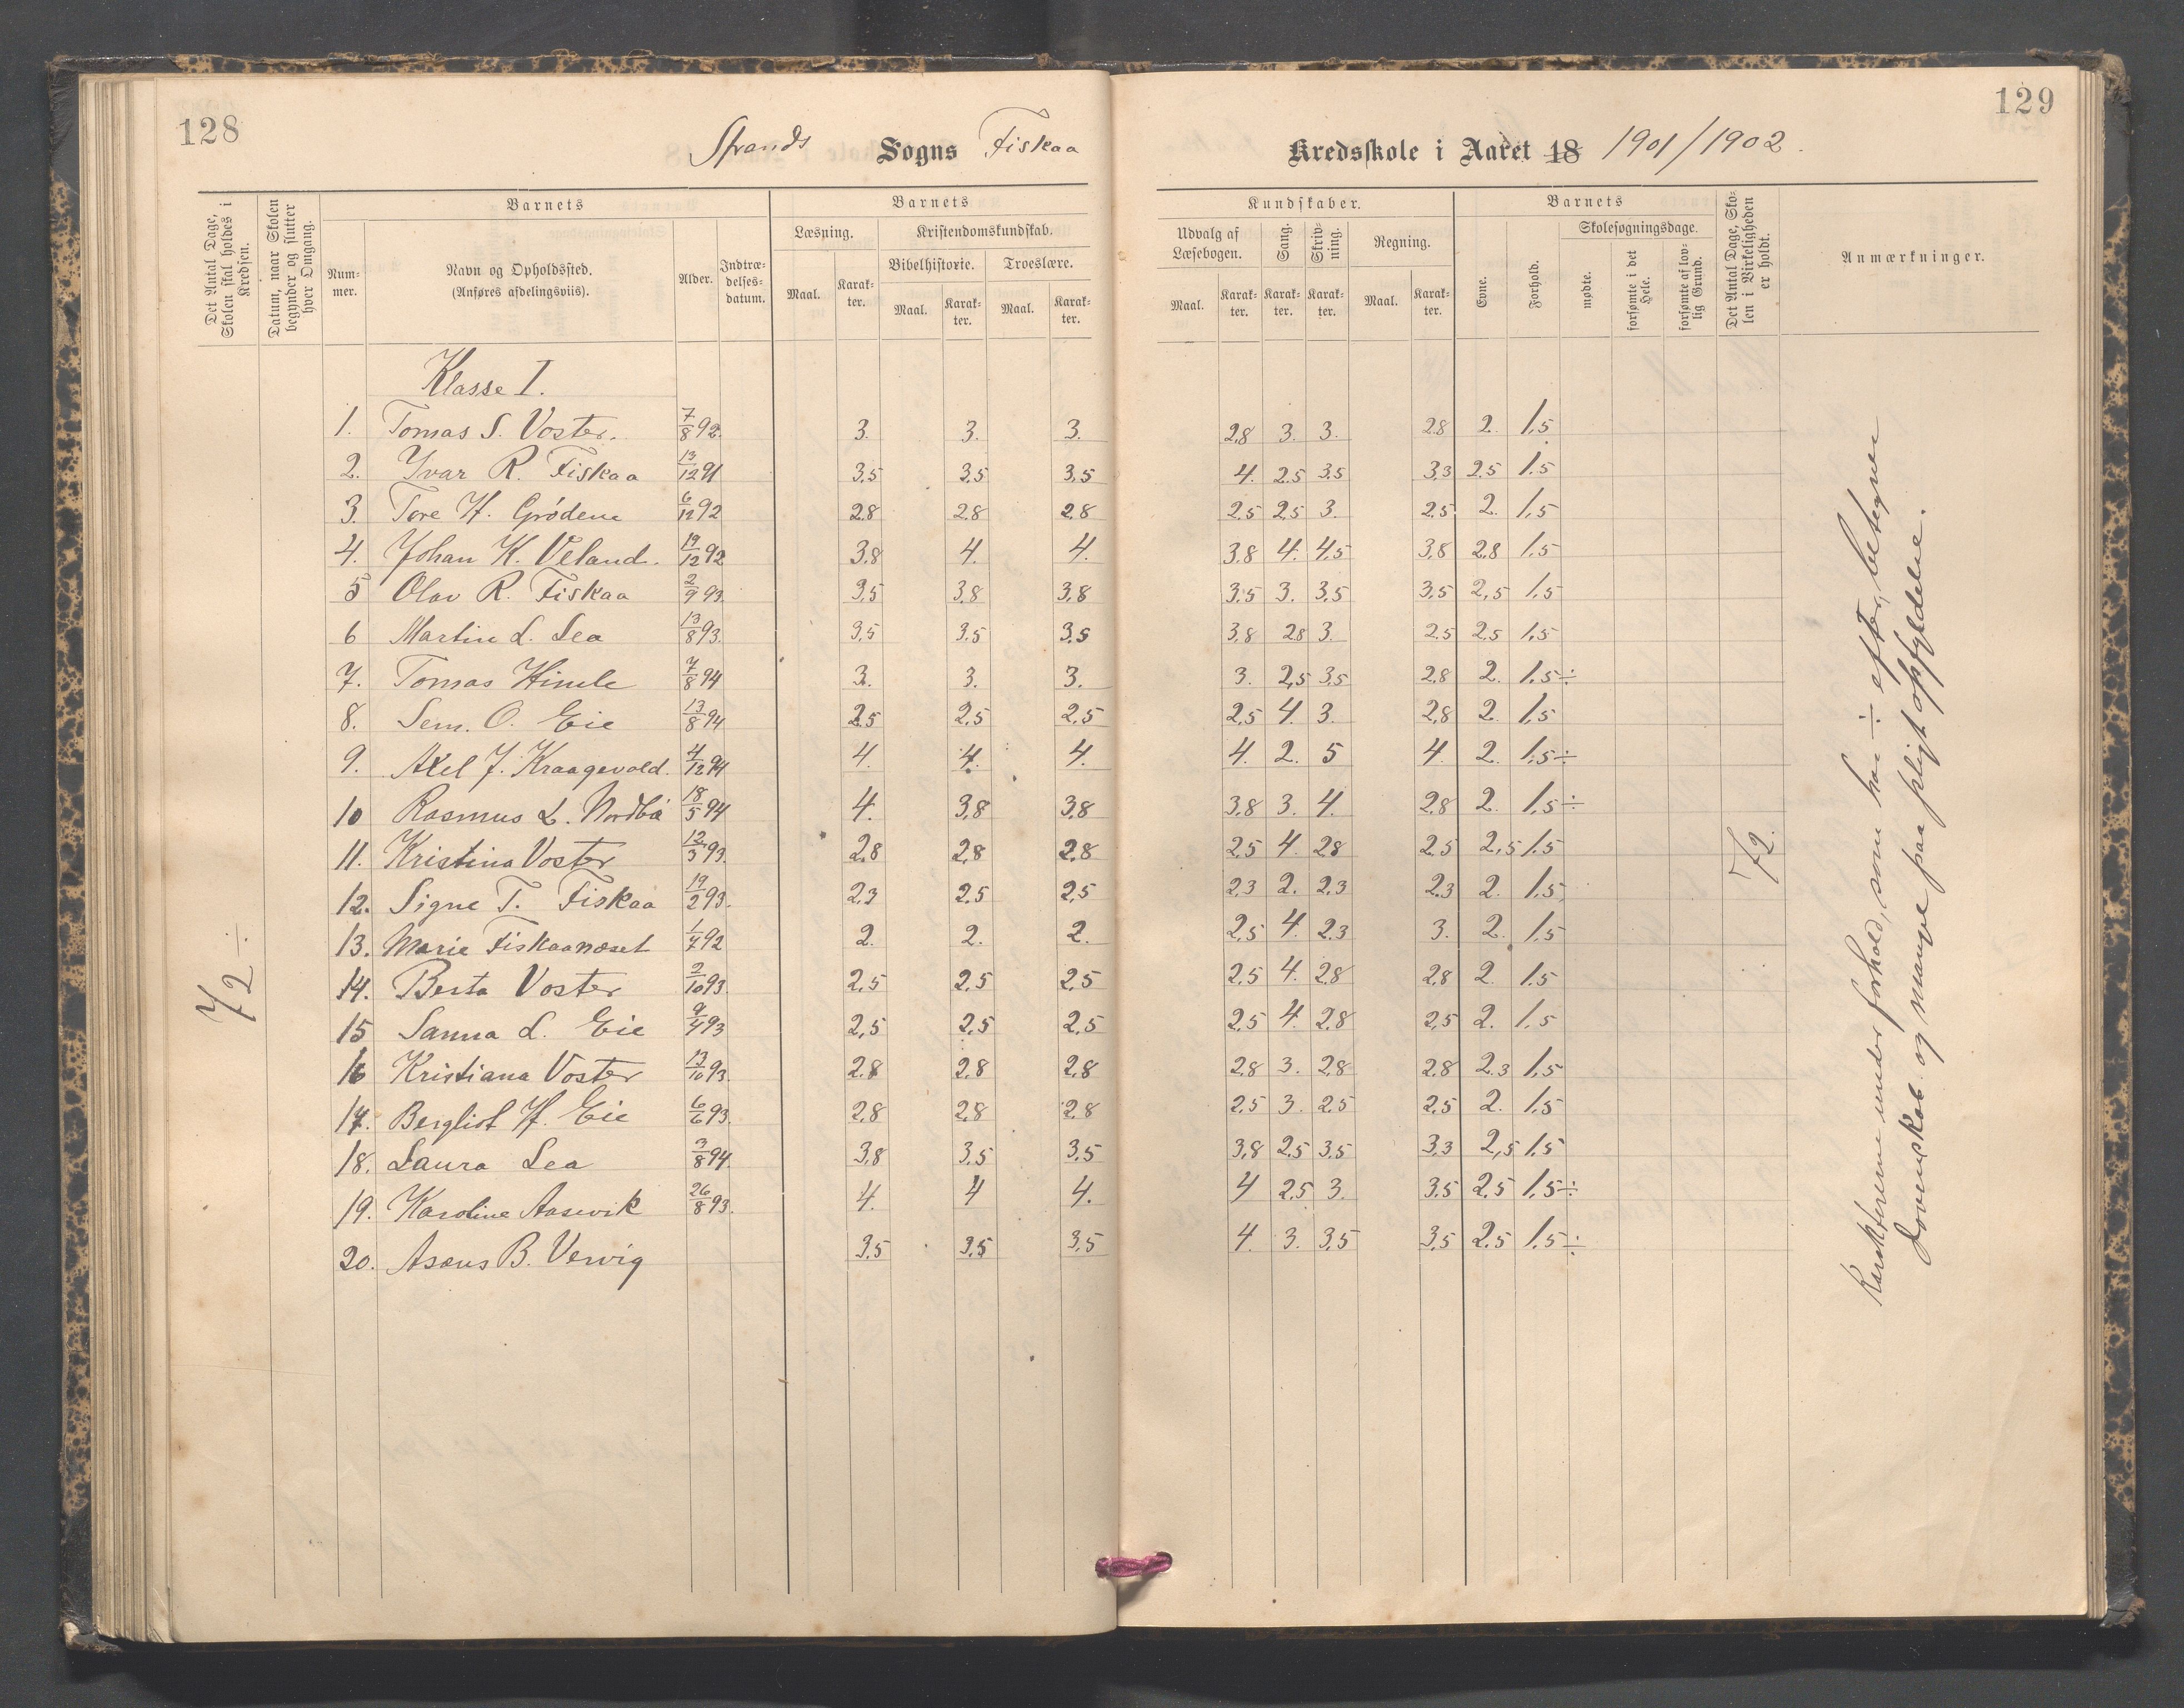 128
129
Strands Sogns Fiskaa Kredsskole i Aaret 18 1901/1902.
Det Antal Dage, Skolen skal holdes i Kredsen.
Datum, naar Skolen begynder og slutter hver Omgang.
Barnets
Nummer.
Navn og Opholdssted. (Anføres afdelingsviis).
Alder.
Indtrædelsesdatum.
Barnets
Læsning.
Maal.
Karakter.
Kristendomskundskab.
Bibelhistorie.
Maal.
Karakter.
Troeslære.
Maal.
Karakter.
Kundskaber.
Udvalg af Læsebogen.
Maal.
Karakter.
Sang.
Karakter.
Skrivning.
Karakter.
Regning.
Maal.
Karakter.
Barnets
Evne.
Forhold.
Skolesøgningsdage.
mødte.
forsømte i det Hele.
forsømte af lovlig Grund.
Det Antal Dage, Skolen i Virkeligheden er holdt.
Anmærkninger.
Klasse I.
1. Tomas S. Voster. 7/8 92. 3. 3. 3. 2,8 3. 3. 2,8 2. 1,5
2. Yvar R. Fiskaa 13/12 91 3,5 3,5 3,5 4. 2,5 3,5 3,3 2,5 1,5
3. Tore H. Grødem 6/12 92 2,8 2,8 2,8 2,5 2,5 3. 2,5 2. 1,5
4. Johan K. Veland. 19/12 92 3,8 4. 4. 3,8 4. 4,5 3,8 2,8 1,5
5 Olav R. Fiskaa 2/9 93. 3,5 3,8 3,8 3,5 3. 3,5 3,5 2,5 1,5
6 Martin L. Lea 13/8 93. 3,5 3,5 3,5 3,8 2,8 3. 2,5 2,5 1,5
7. Tomas Himle 7/8 94 3. 3. 3. 3. 2,5 3,5 2,8 2. 1,5÷
8. Sem. O. Eie 13/8 94 2,5 2,5 2,5 2,5 4. 3. 2,8 2. 1,5
9. Axel J. Kraagevold. 4/12 94 4. 4. 4. 4. 2. 5 4. 2. 1,5÷
10 Rasmus L. Nordbø 18/5 94 4. 3,8 3,8 3,8 3. 4. 2,8 2. 1,5÷
11. Kristina Voster 12/3 93. 2,8 2,8 2,8 2,5 4. 2,8 2,5 2,5 1,5
12. Signe T. Fiskaa 19/2 93. 2,3 2,5 2,5 2,3 2. 2,3 2,3 2. 1,5
13. Marie Fiskaanæset 1/7 92 2. 2. 2. 2,5 4. 2,3 3. 2. 1,5
14. Berta Voster 2/10 93. 2,5 2,5 2,5 2,5 4. 2,8 2,8 2. 1,5
15 Sanna L. Eie 9/4 93 2,5 2,5 2,5 2,5 4. 2,8 2,5 2. 1,5
16 Kristiana Voster 13/10 93. 2,8 2,8 2,8 2,8 3. 2,8 2,8 2,3 1,5
17. Bergliot H. Eie 6/6 93. 2,8 2,8 2,8 2,5 3. 2,5 2,5 2. 1,5
18. Laura Lea 3/8 94. 3,8 3,5 3,5 3,8 2,5 3,5 3,3 2,5 1,5
19. Karoline Aasevik 26/8 93. 4. 4 4. 4 2,5 3. 3,5 2,5 1,5÷
20. Asæus B. Vervig 3,5 3,5 3,5 4. 3. 3,5 3,5 2,5 1,5÷
72 ÷
72.
Karaktererne under forhold, som har ÷ efter, betegner
dovenskab og mangel paa pligt opfyldelse.